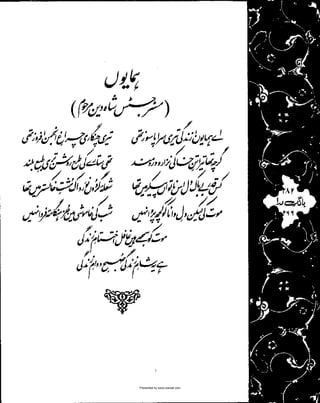 ہمایوں
(مسٹر جسٹس شاہ دین مرحوم)
اے ہمایوں! زندگی تیری سراپا سوز تھی
تیری چنگاری چراغِ انجمن افروز تھی
گرچہ تھا تیرا تنِ خاکی نزار و دردمند
تھی ستارے کی طرح روشن تری طبعِ بلند
کس قدر بے باک دل اس ناتواں پیکر میں تھا
شعلۂ گردوں نورد اک مشتِ خاکستر میں تھا
موت کی لیکن دلِ دانا کو کچھ پروا نہیں
شب کی خاموشی میں جز ہنگامۂ فردا نہیں
موت کو سمجھے ہیں غافل اختتامِ زندگی
ہے یہ شامِ زندگی، صبحِ دوامِ زندگی
بانگِ درا
Presented by